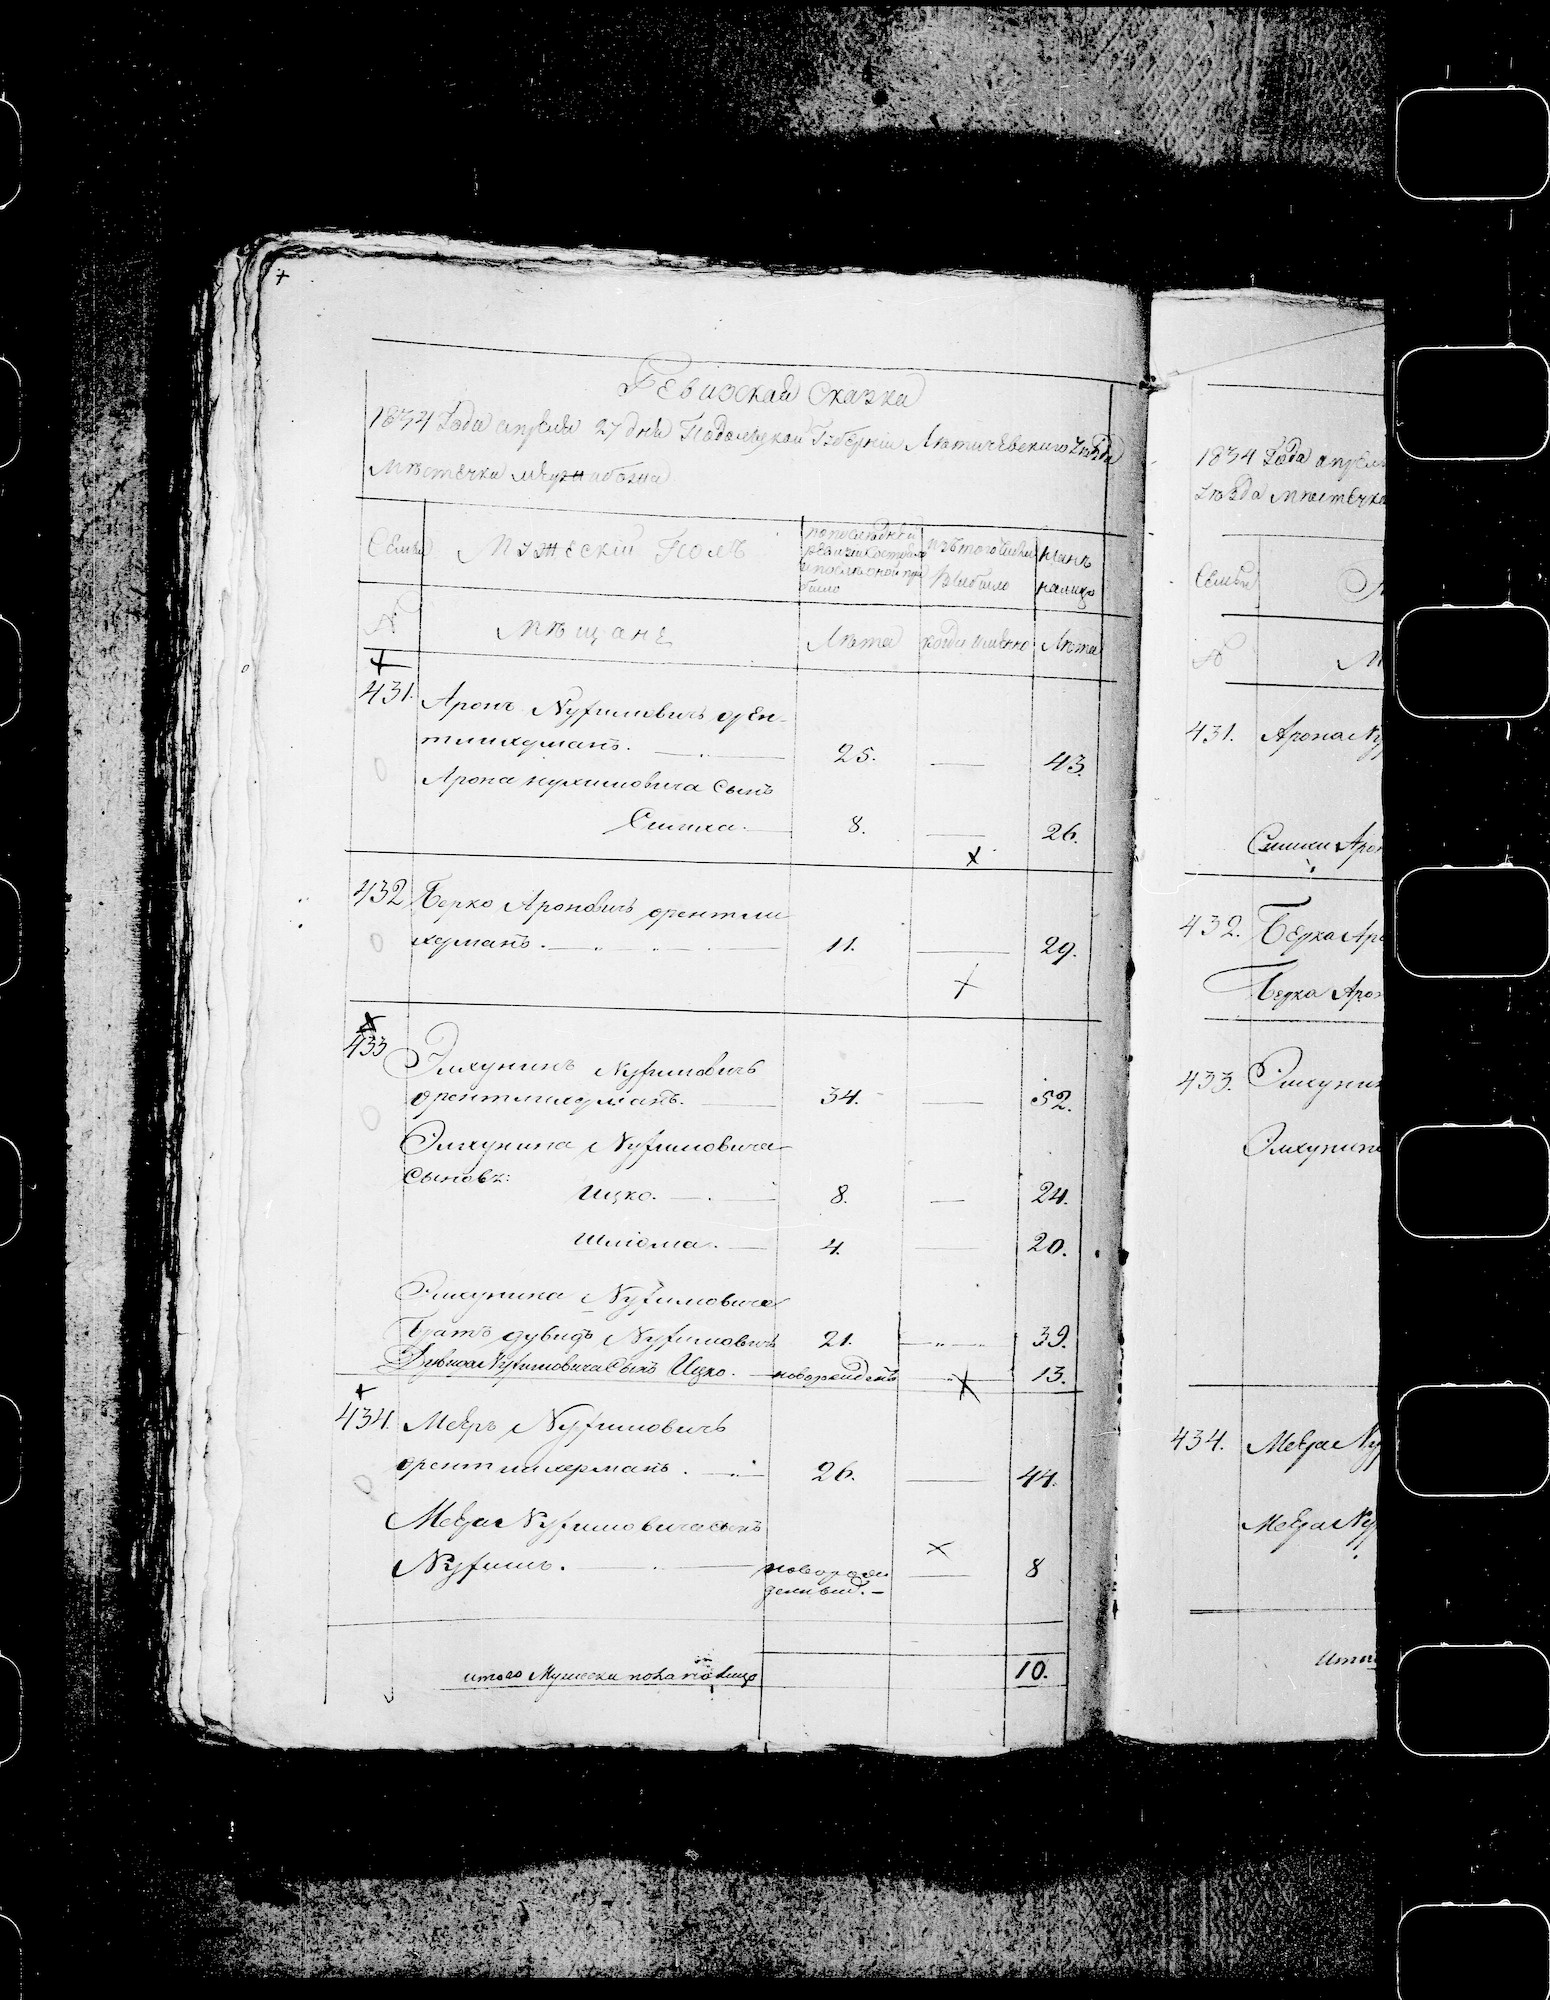 Ревизская Сказка
1834 Года апреля 27 дня Подольской Губерніи Летичевскаго уезда
Местечка межибожа
Семьи
Мужескій Полъ
по последней ревизіи состояло и после оной при было
изъ того числа выбыло
ныне на лицо
№
Мещане
Лета
когда именно
Лета
431. Аронъ Нухимовичъ орен-
тлихерманъ. 25. — 43.
Арона нухимовича сынъ
Симха. 8. — 26.
432 Берко Ароновичъ орентли
херманъ. 11. — 29.
433 Элхунинъ Нухимовичъ
орентлихерманъ. 34. — 52.
Элхунина Нухимовича
сыновя:
Ицко. 8. — 24.
Шліома. 4. — 20.
Элхунина Нухимовича
Братъ дувидъ Нухимовичъ 21. — 39.
Дувида Нухимовича Сынъ Ицко. новорожденъ — 13.
434. Мееръ Нухимовичъ
орентлихерманъ. 26. — 44.
Меера Нухимовича сынъ
Нухимъ. новорож
денный. — 8
итого Мужеска пола на лицо 10.
1834 Года апреля
уезда местечка
Семьи
№
431. Арона Ну
Симхи Арон
432. Берка Аро
Берка Арон
433. Элхунин
Элхунин
434. Меера Ну
Меера Ну
Итого